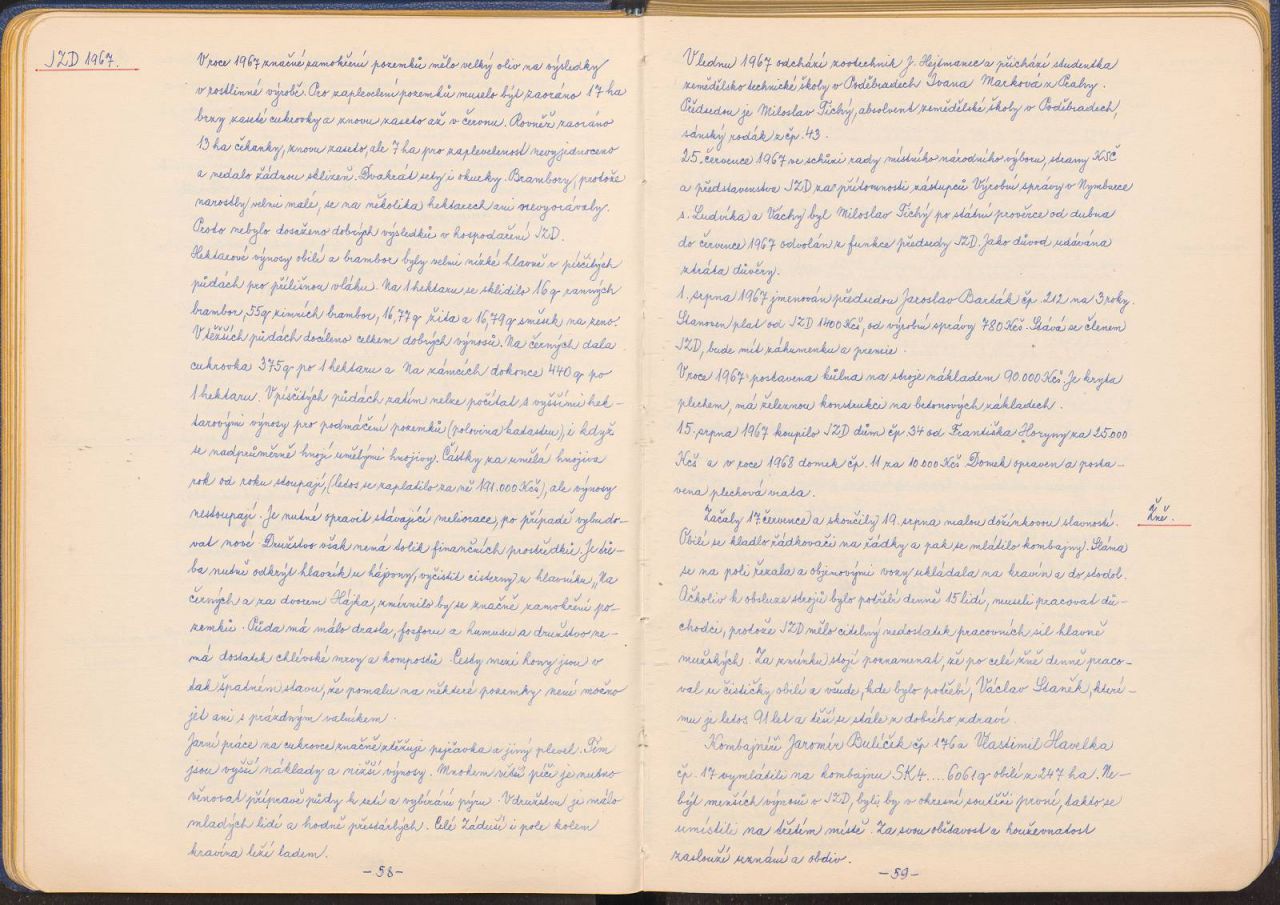 JZD 1967.
V roce 1967 značné zamokření pozemků mělo velký vliv na výsledky
v rostlinné výrobě. Pro zaplevelení pozemků muselo být zaoráno 17 ha
brzy zaseté cukrovky a znovu zaseto až v červnu. Rovněž zaoráno
13 ha čekanky, znovu zaseto, ale 7 ha pro zaplevelenost nevyjednoceno
a nedalo žádnou sklizeň. Dvakrát sety i okurky. Brambory, protože
narostly velmi malé, se na několika hektarech ani nevyorávaly.
Proto nebylo dosaženo dobrých výsledků v hospodaření JZD.
Hektarové výnosy obilí a brambor byly velmi nízké hlavně v písčitých
půdách pro přílišnou vláhu. Na 1 hektaru se sklidilo 16 q ranných
brambor, 55 q zimních brambor, 16,77 q žita a 16,79 q směsek na zrno.
V těžších půdách docíleno celkem dobrých výnosů. Na černých dala
cukrovka 375 q po 1 hektaru a Na zámcích dokonce 440 q po
1 hektaru. V písčitých půdách zatím nelze počítat s vyššími hek-
tarovými výnosy pro podmáčení pozemků (polovina katastru), i když
se nadprůměrně hnojí umělými hnojivy. Částky za umělá hnojiva
rok od roku stoupají, (letos se zaplatilo za ně 191.000 Kčs), ale výnosy
nestoupají. Je nutné opravit stávající meliorace, po případě vybudo-
vat nové. Družstvo však nemá tolik finančních prostředků. Je tře-
ba nutně odkrýt hlavník u hájovny, vyčistit cisterny u hlavníku „Na
černých a za dvorem Hájka, zmírnilo by se značně zamokření po-
zemků. Půda má málo drasla, fosforu a humusu a družstvo ne-
má dostatek chlévské mrvy a kompostů. Cesty mezi hony jsou v
tak špatném stavu, že pomalu na některé pozemky není možno
jet ani s prázdným valníkem.
Jarní práce na cukrovce značně ztěžuje pejřavka a jiný plevel. Tím
jsou vyšší náklady a nižší výnosy. Mnohem větší péči je nutno
věnovat přípravě půdy k setí a vybírání pýru. V družstvu je málo
mladých lidí a hodně přestárlých. Celé Záduší i pole kolem
kravína leží ladem.
- 58 -
V lednu 1967 odchází zootechnik J. Hejtmanec a přichází studentka
zemědělsko technické školy v Poděbradech Ivana Marková z Prahy.
Předsedou je Miloslav Tichý, absolvent zemědělské školy v Poděbradech,
sánský rodák z čp. 43.
25. července 1967 ve schůzi rady místního národního výboru, strany KSČ
a představenstva JZD za přítomnosti zástupců Výrobní správy v Nymburce
s. Ludvíka a Váchy byl Miloslav Tichý po státní prověrce od dubna
do července 1967 odvolán z funkce předsedy JZD. Jako důvod udávána
ztráta důvěry.
1. srpna 1967 jmenován předsedou Jaroslav Barták čp. 212 na 3 roky.
Stanoven plat od JZD 1400 Kčs, od výrobní správy 780 Kčs. Stává se členem
JZD, bude mít záhumenku a premie.
V roce 1967 postavena kůlna na stroje nákladem 90.000 Kčs. Je kryta
plechem, má železnou konstrukci na betonových základech.
15. srpna 1967 koupilo JZD dům čp. 34 od Františka Horyny za 25.000
Kčs a v roce 1968 domek čp. 11 za 10.000 Kčs. Domek opraven a posta-
vena plechová vrata.
Žně.
Začaly 17. července) a skončily) 19. srpna malou dožínkovou slavností.
Obilí se kladlo řádkovači na řádky a pak se mlátilo kombajny. Sláma
se na poli řezala a objemovými vozy ukládala na kravín a do stodol.
Ačkoliv k obsluze strojů bylo potřebí denně 15 lidí, museli pracovat dů-
chodci, protože JZD mělo citelný nedostatek pracovních sil hlavně
mužských. Za zmínku stojí poznamenat, že po celé žně denně praco-
val u čističky obilí a všude, kde bylo potřebí, Václav Staněk, které-
mu je letos 91 let a těší se stále z dobrého zdraví.
Kombajnéři Jaromír Bulíček čp 176 a Vlastimil Havelka
čp. 17 vymlátili na kombajnu SK4....6061 q obilí z 247 ha. Ne-
být menších výnosů v JZD, byli by v okresní soutěži první, takto se
umístili na třetím místě. Za svou obětavost a houževnatost
zaslouží uznání a obdiv.
- 59 -